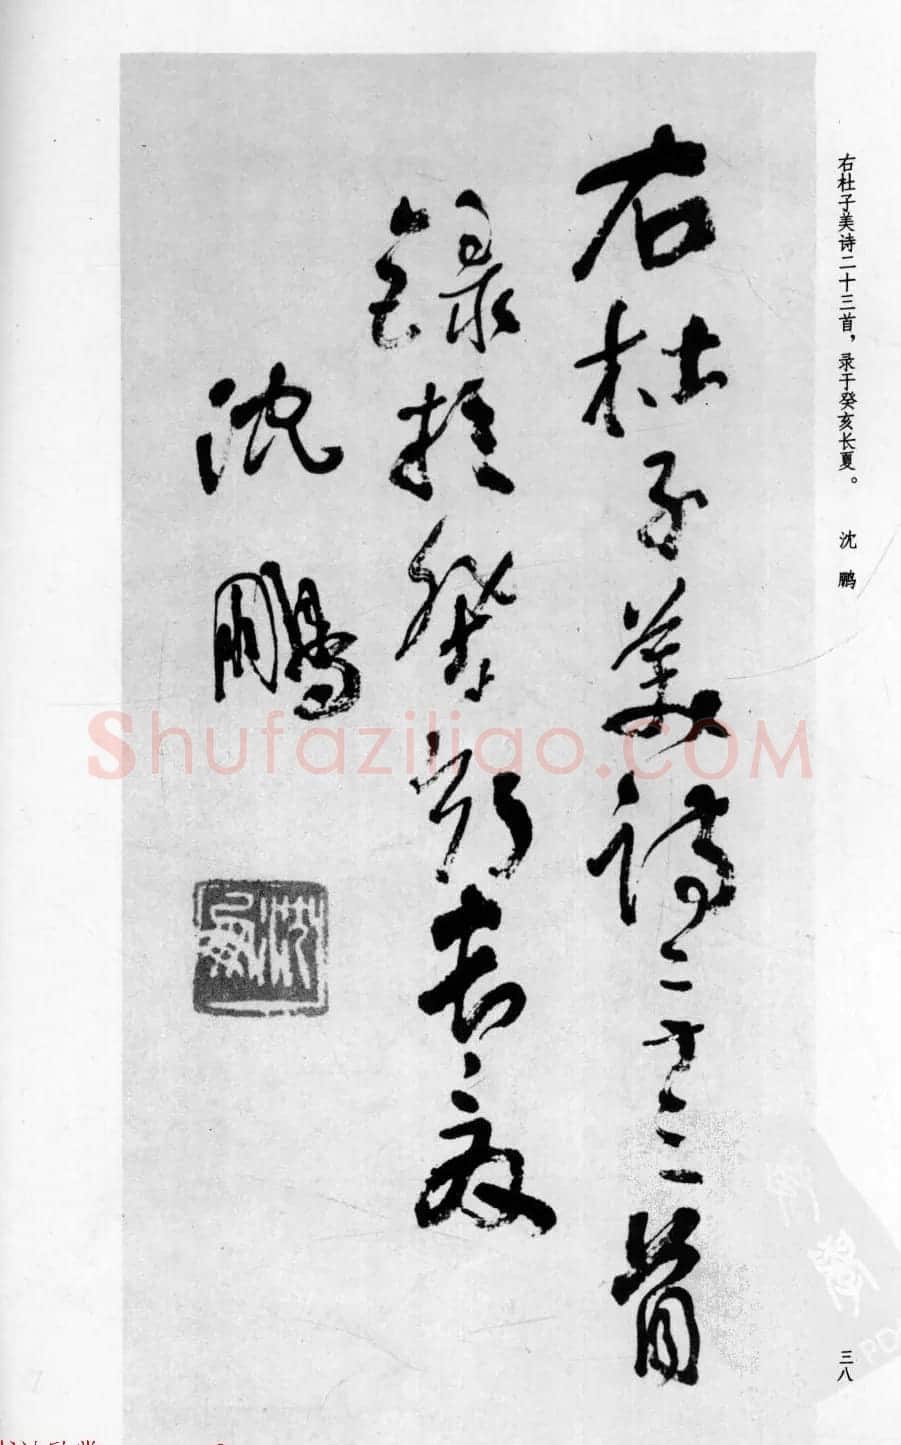 右杜子美诗二十三首，录于癸亥长夏。 沈鹏
右杜子美詩二十三首
録於癸亥長夏
沈鵬
沈鵬
Shufaziliao.COM
三八